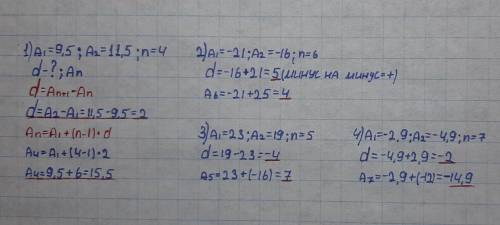 1) A₁=9,5; A₂=11,5; n=4
d-?; Aₙ
d=Aₙ₊₁-Aₙ
d=A₂-A₁=11,5-9,5=2
Aₙ=A₁+(n-1)•d
A₄=A₁+(4-1)•2
A₄=9,5+6=15,5
2) A₁=-21; A₂=-16; n=6
d=-16+21=5 (минус на минус=+)
A₆=-21+25=4
3) A₁=23; A₂=19; n=5
d=19-23=-4
A₅=23+(-16)=7
4) A₁=-2,9; A₂=-4,9; n=7
d=-4,9+2,9=-2
A₇=-2,9+(-12)=-14,9